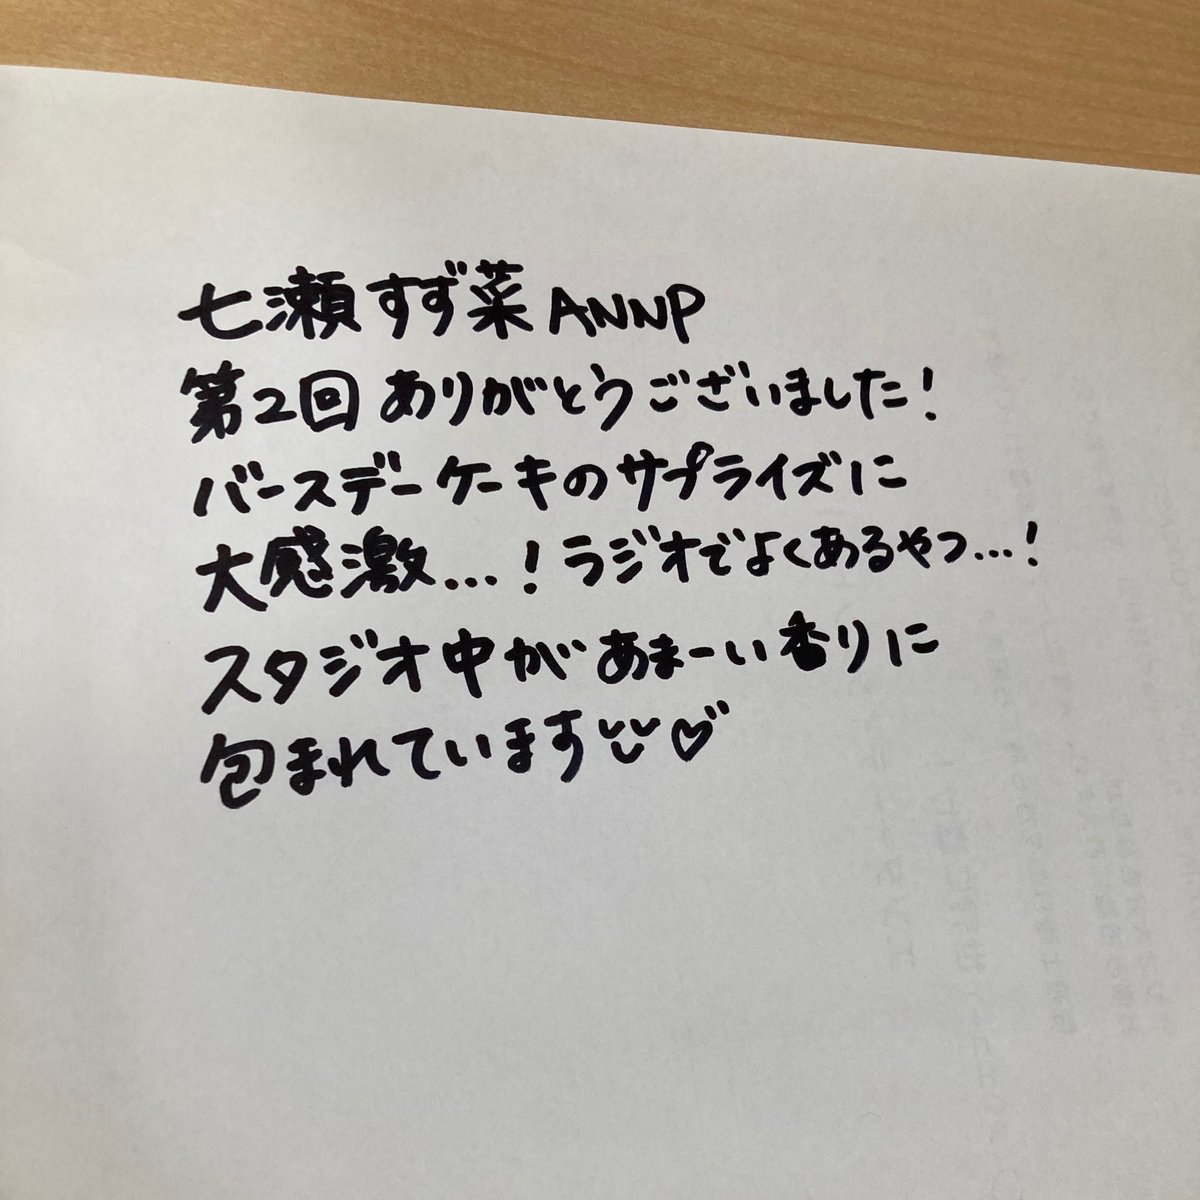 七瀬すず菜ANNP
第2回ありがとうございました!
バースデーケーキのサプライズに
大感激...!ラジオでよくあるやつ...!
スタジオ中があまーい香りに
包まれています♡